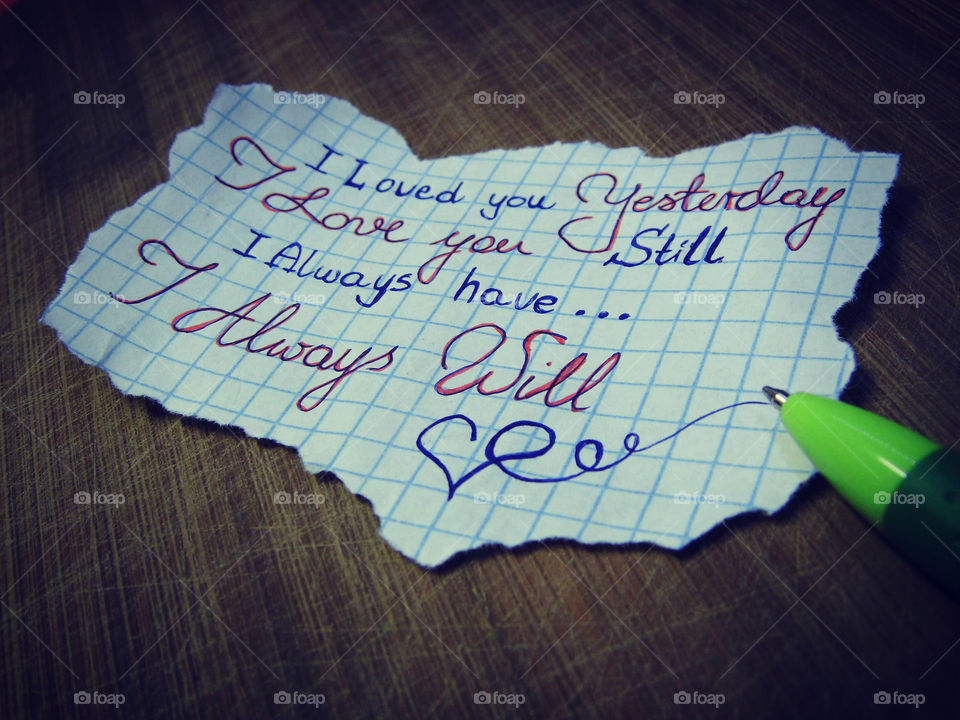 I Loved you Yesterday
I Love you Still
I Always have...
I Always Will
foap foap foap foap foap
foap foap foap foap foap
foap foap foap foap foap
foap foap foap foap foap